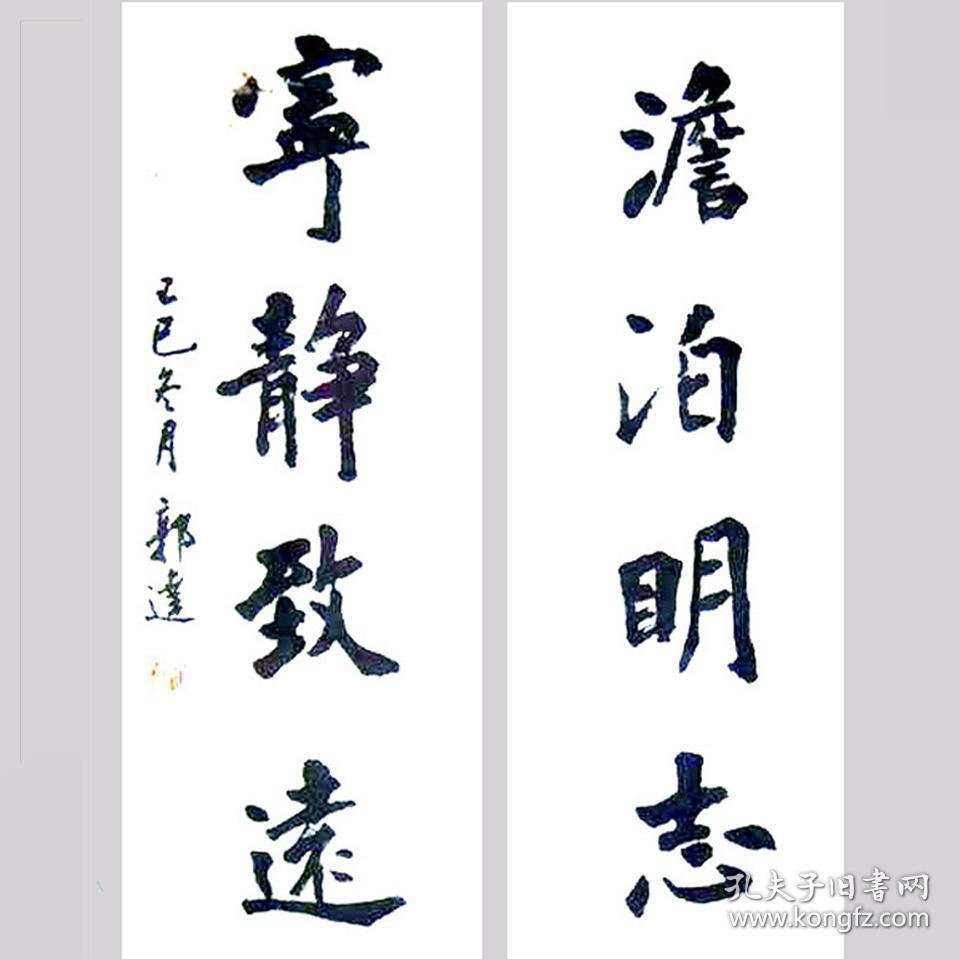 澹泊明志
寧静致遠
郭達
孔夫子旧書网
www.kongfz.com